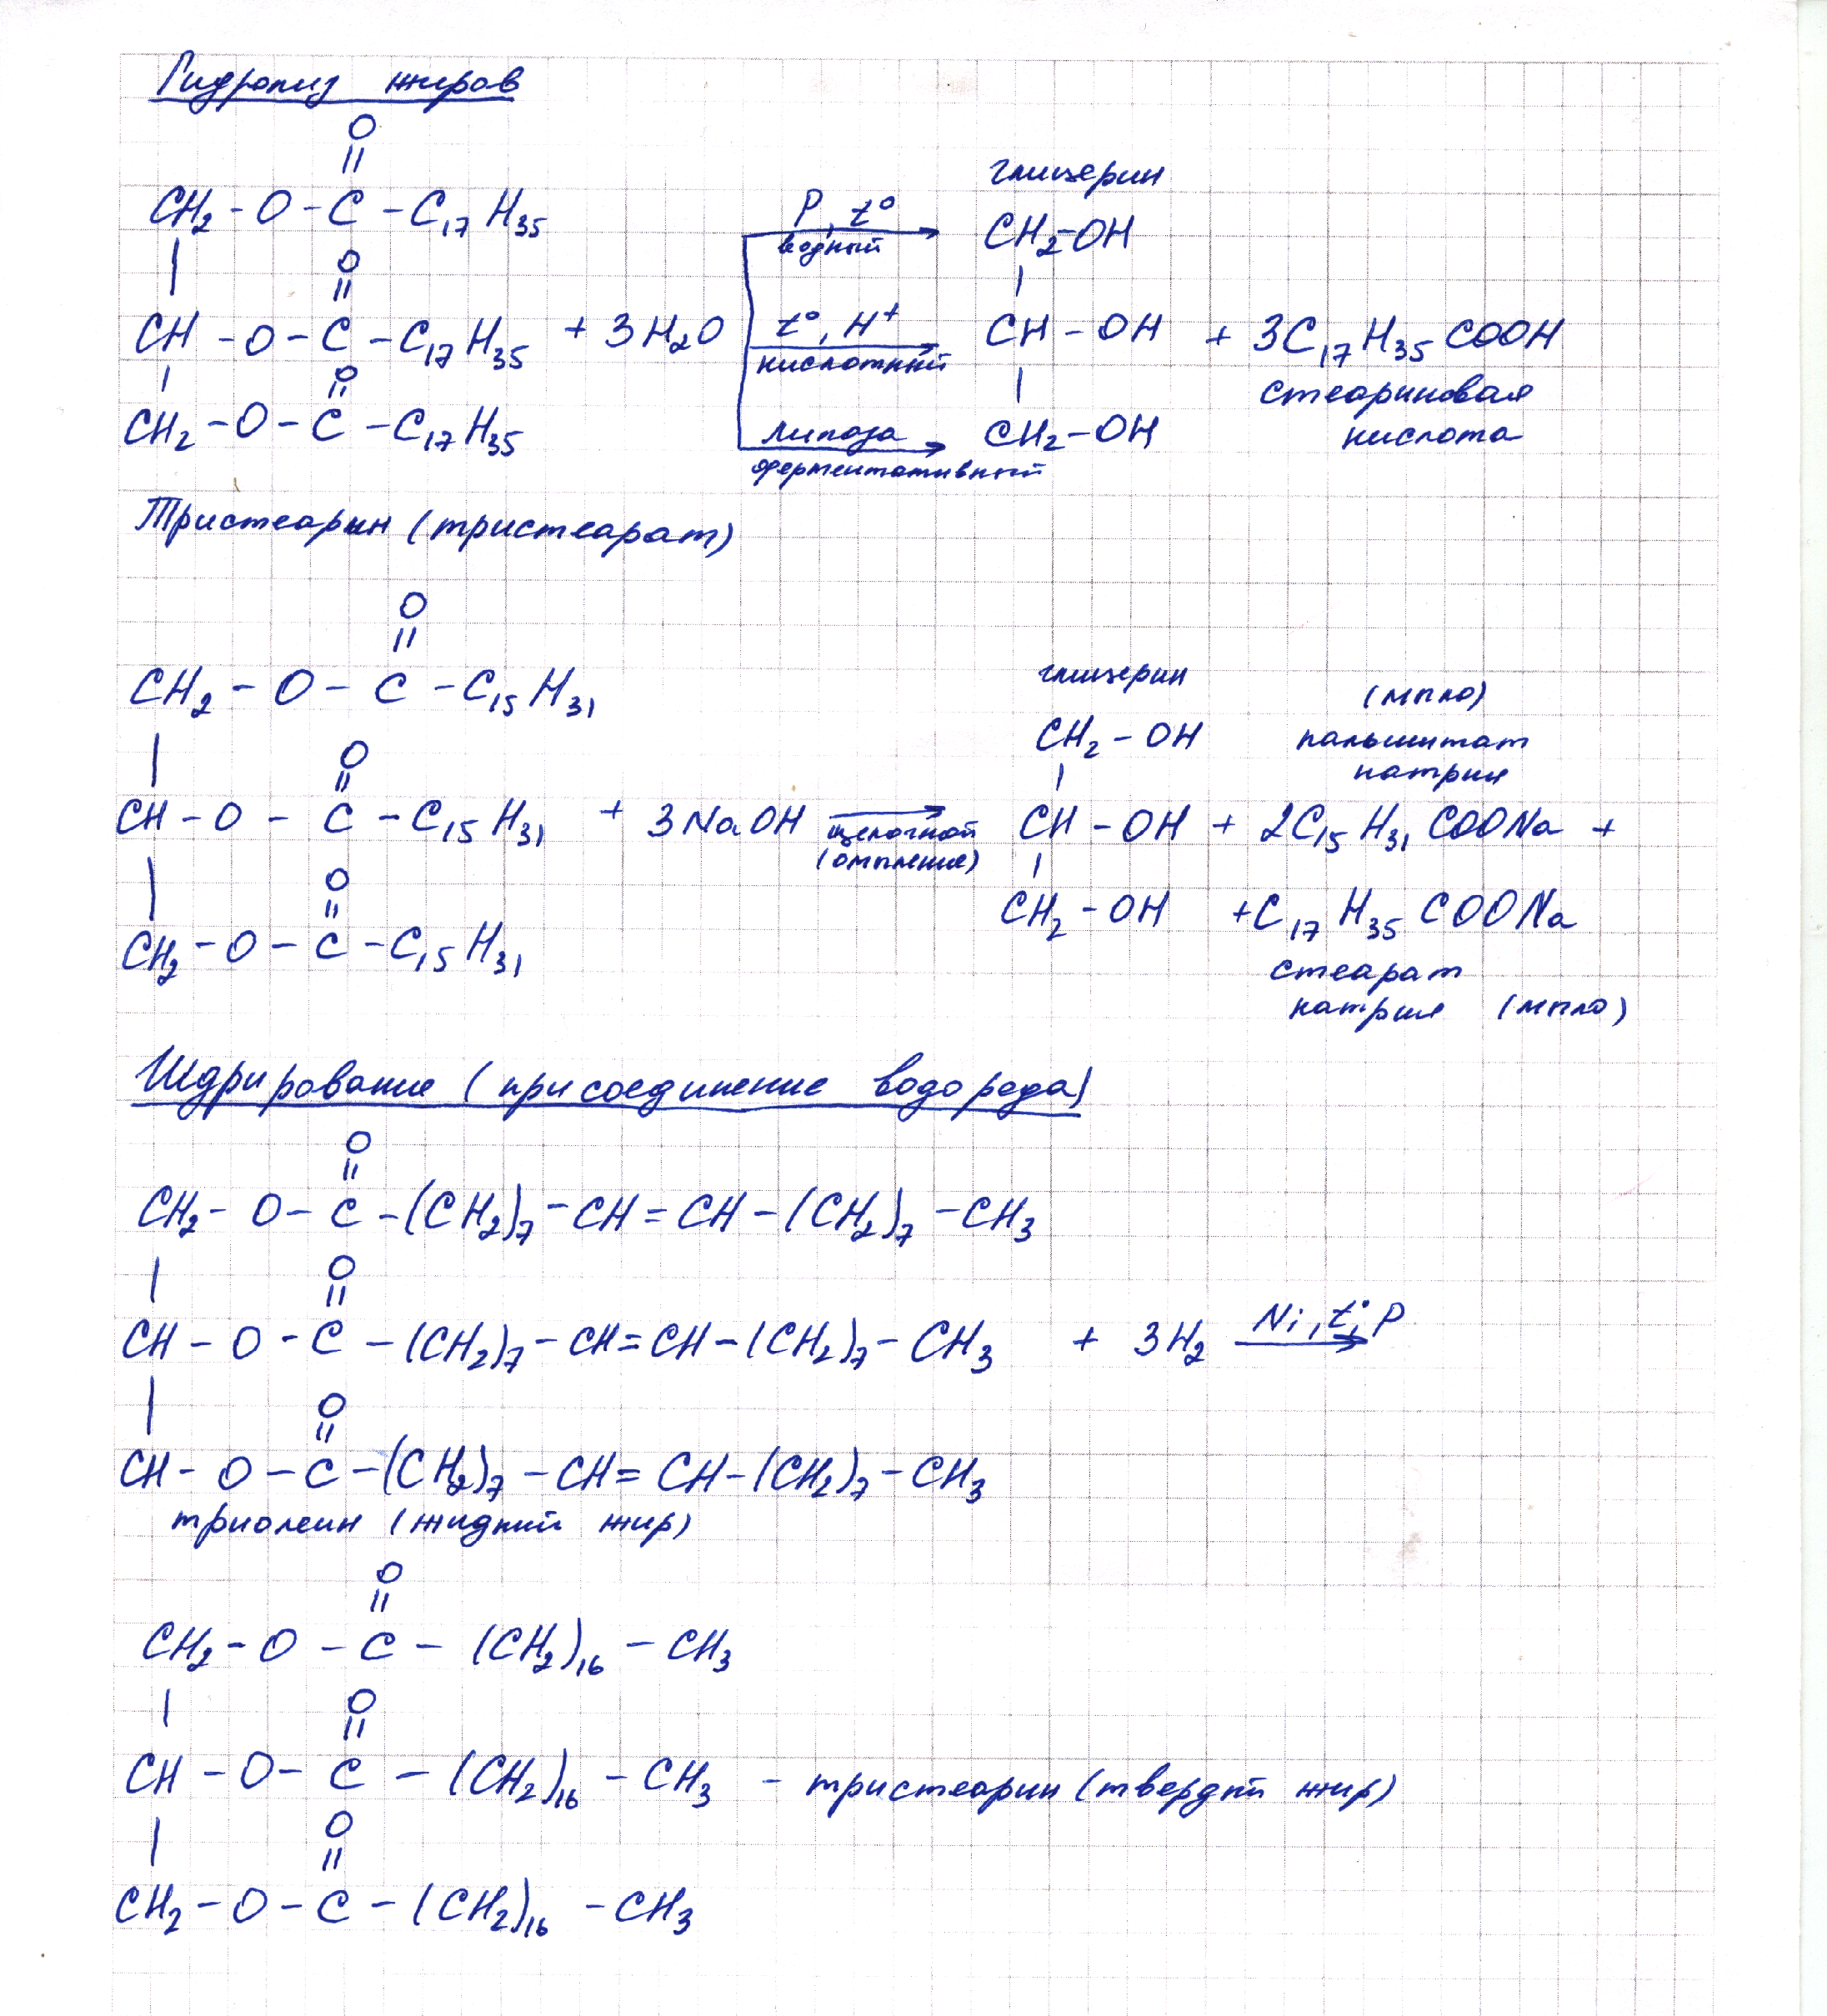 Гидролиз жиров
O
||
CH₂ - O - C - C₁₇H₃₅
|
O
||
CH - O - C - C₁₇H₃₅ + 3H₂O
|
O
||
CH₂ - O - C - C₁₇H₃₅
P, t°
водный
t°, H⁺
кислотный
липаза
ферментативный
глицерин
CH₂-OH
|
CH - OH + 3C₁₇H₃₅COOH
|
CH₂-OH
стеариновая
кислота
Тристеарин (тристеарат)
O
||
CH₂ - O - C - C₁₅H₃₁
|
O
||
CH - O - C - C₁₅H₃₁ + 3NaOH
|
O
||
CH₂ - O - C - C₁₅H₃₁
щелочной
(омыление)
глицерин
CH₂ - OH
|
CH - OH + 2C₁₅H₃₁COONa +
|
CH₂ - OH +C₁₇H₃₅COONa
(мыло)
пальмитат
натрия
стеарат
натрия (мыло)
Гидрирование (присоединение водорода)
O
||
CH₂ - O - C - (CH₂)₇ - CH = CH - (CH₂)₇ - CH₃
|
O
||
CH - O - C - (CH₂)₇ - CH = CH - (CH₂)₇ - CH₃ + 3H₂ Ni, t°, P →
|
O
||
CH - O - C - (CH₂)₇ - CH = CH - (CH₂)₇ - CH₃
триолеин (жидкий жир)
O
||
CH₂ - O - C - (CH₂)₁₆ - CH₃
|
O
||
CH - O - C - (CH₂)₁₆ - CH₃ - тристеарин (твердый жир)
|
O
||
CH₂ - O - C - (CH₂)₁₆ - CH₃